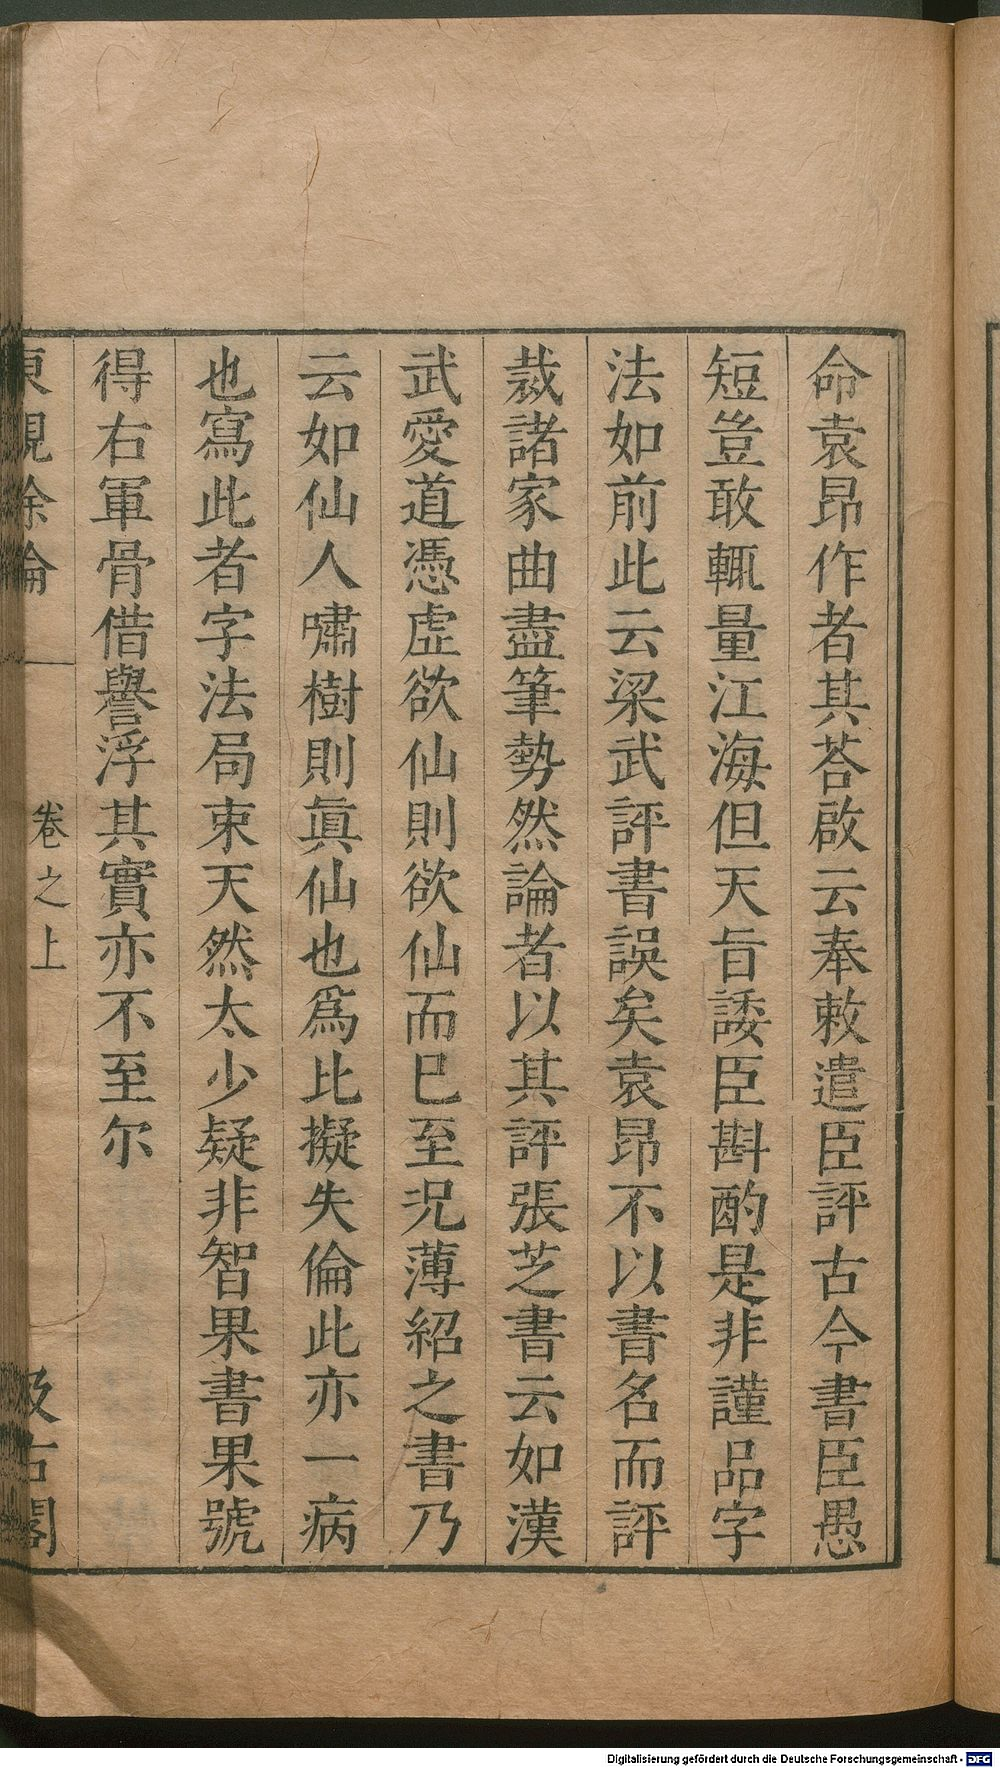 命袁昂作者其荅啟云奉敕遣臣評古今書臣愚
短豈敢輒量江海但天旨諉臣斟酌是非謹品字
法如前此云梁武評書誤矣袁昂不以書名而評
裁諸家曲盡筆勢然論者以其評張芝書云如漢
武愛道憑虛欲仙則欲仙而巳至况薄紹之書乃
云如仙人嘯樹則眞仙也爲比擬失倫此亦一病
也寫此者字法局束天然太少疑非智果書果號
得右軍骨借譽浮其實亦不至尔
東觀餘論
卷之上
汲古閣
Digitalisierung gefördert durch die Deutsche Forschungsgemeinschaft - DFG